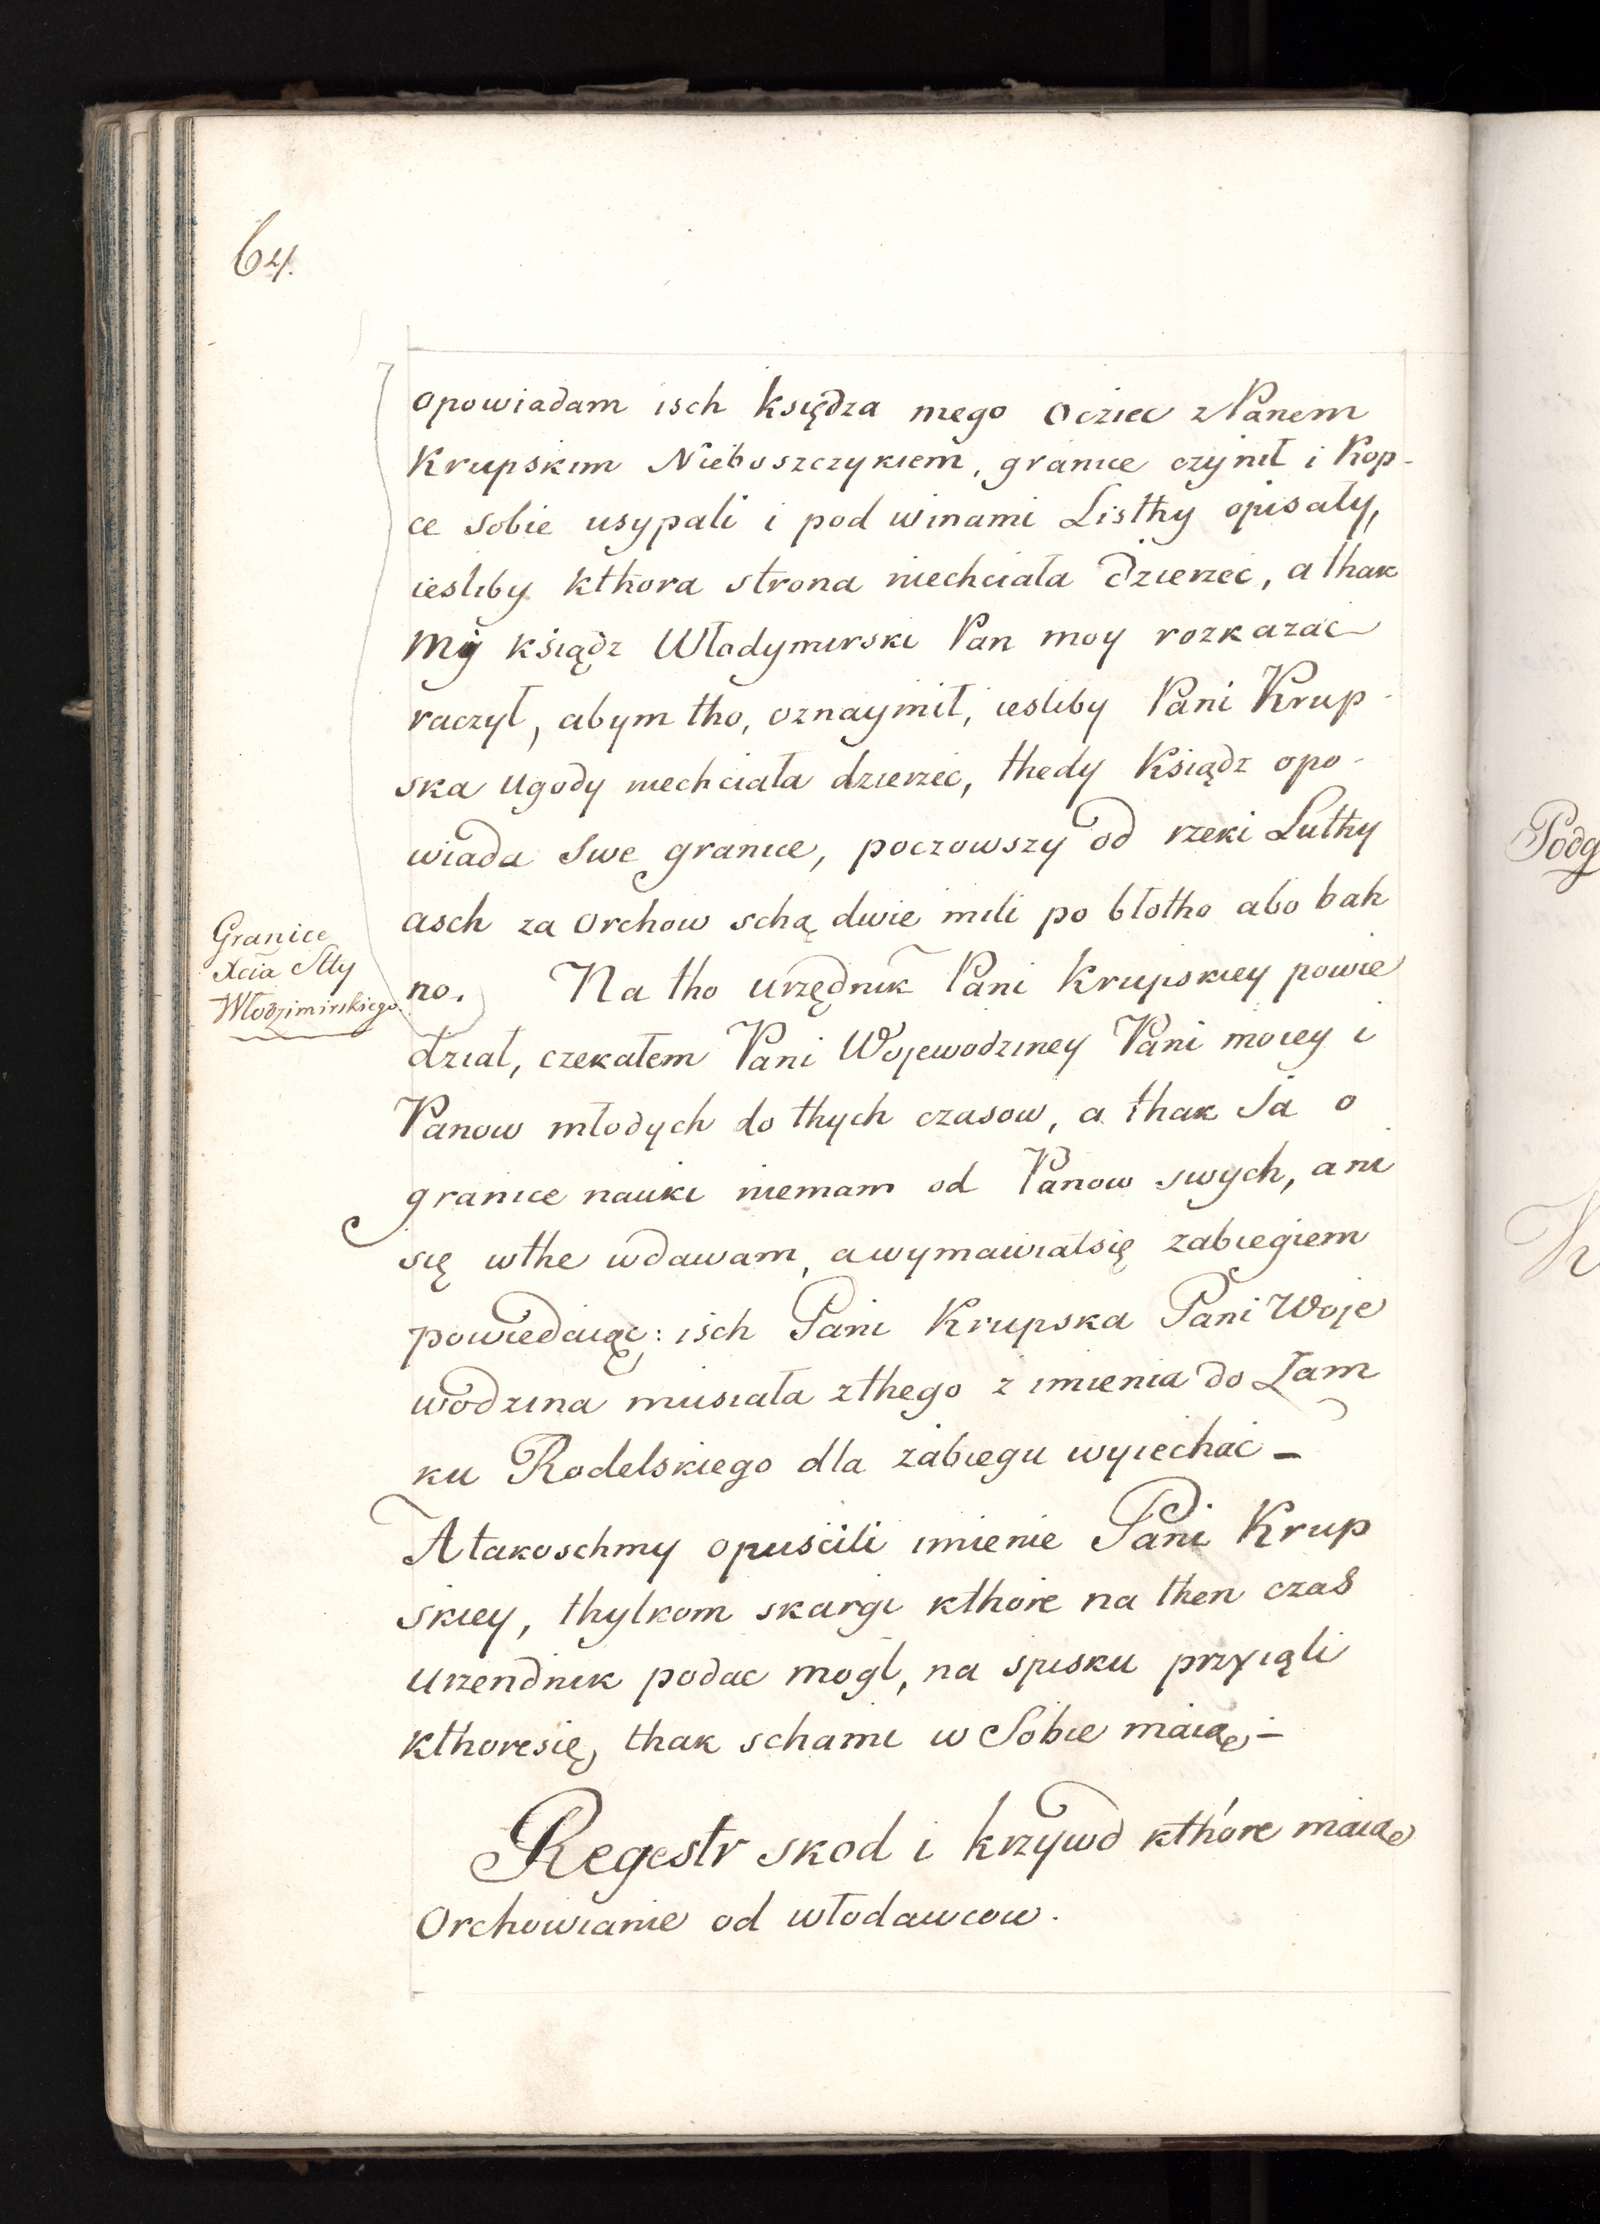 64.
opowiadam isch księdza mego ociec z Panem
Krupskim Nieboszczykiem, granice czynił i Kop-
ce sobie usypali i pod winami Listhy opisały,
iesliby kthora strona niechciała dzierzec, a thak
My ksiądz Włodymirski Pan moy rozkazac
raczył, abym tho, oznaymił, iesliby Pani Krup-
ska ugody niechciała dzierzec, thedy Ksiądz opo-
wiada swe granice, poczowszy od rzeki Luthy
asch za Orchow schą dwie mili po błotho abo bah
no. Na tho urzędnik Pani Krupskiey powie
dział, czekałem Pani Wojewodziney Pani moiey i
Panow młodych do thych czasow, a thak Ja o
granice nauki niemam od Panow swych, ani
się wthe wdawam, a wymawiałsię zabiegiem
powiedaiąc: isch Pani Krupska Pani Woje
wodzina musiała zthego z imienia do Zam
ku Rodelskiego dla zabiegu wyiechać –
A takoschmy opuścili imienie Pani Krup
skiey, thylkom skargi kthore na then czas
urzendnik podac mogł, na spisku przyiąli
kthoresię, thak schami w Sobie maią, –
Regestr skod i krzywd kthóre maią
Orchowianie od włodawcow.
Granice
Xcia
Włodzimirskiego.
Podg